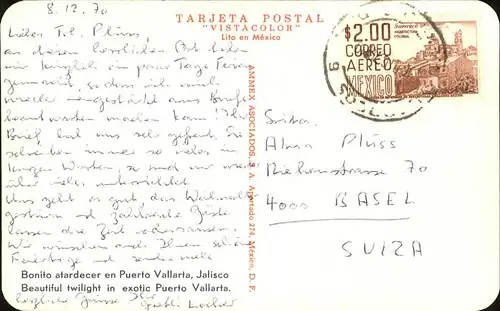 8.12.70
TARJETA POSTAL
"VISTACOLOR"
Lito en México
$2.00
CORREO
AEREO
MEXICO
ARQUITECTURA
COLONIAL
Liebes Frl. Plüss,
an diesem herrlichen Ort haben
wir kürzlich ein paar Tage Ferien
gemacht, so dass ich mich
ans
beantworten machen kann. Ihr
Brief hat uns sehr gefreut. Sie
schreiben immer so vieles in
Worten, so sind wir
über vieles unterrichtet.
Uns geht es gut, das
und zahlreiche Gäste
lassen die Zeit
Wir wünschen auch Ihnen schöne
Feiertage und senden viele
herzliche Grüsse Ihre
AMMEX ASOCIADOS, S. A. Apartado 274, México, D. F.
Srita.
Alma Plüss
Riehenstrasse 70
4000 BASEL
SUIZA
Bonito atardecer en Puerto Vallarta, Jalisco
Beautiful twilight in exotic Puerto Vallarta.